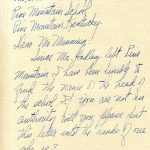 Pine Mountain School
Pine Mountain, Kentucky
Dear Mr. Manning
Since Mr. Hadley left Pine
Mountain I have been unable to
find the name of the head of
the school. If you are not in
authority will you please put
this letter into the hands of one
who is?